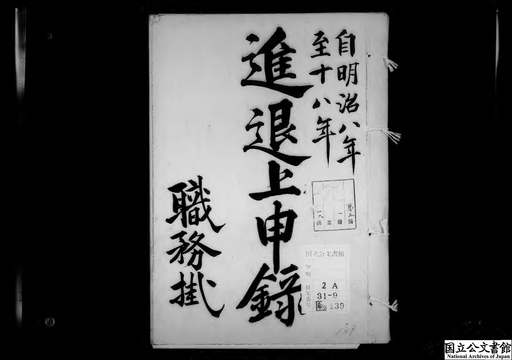 自明治八年
至十八年
進退上申録
職務掛
国立公文書館
2 A
31-9
139
国立公文書館
National Archives of Japan